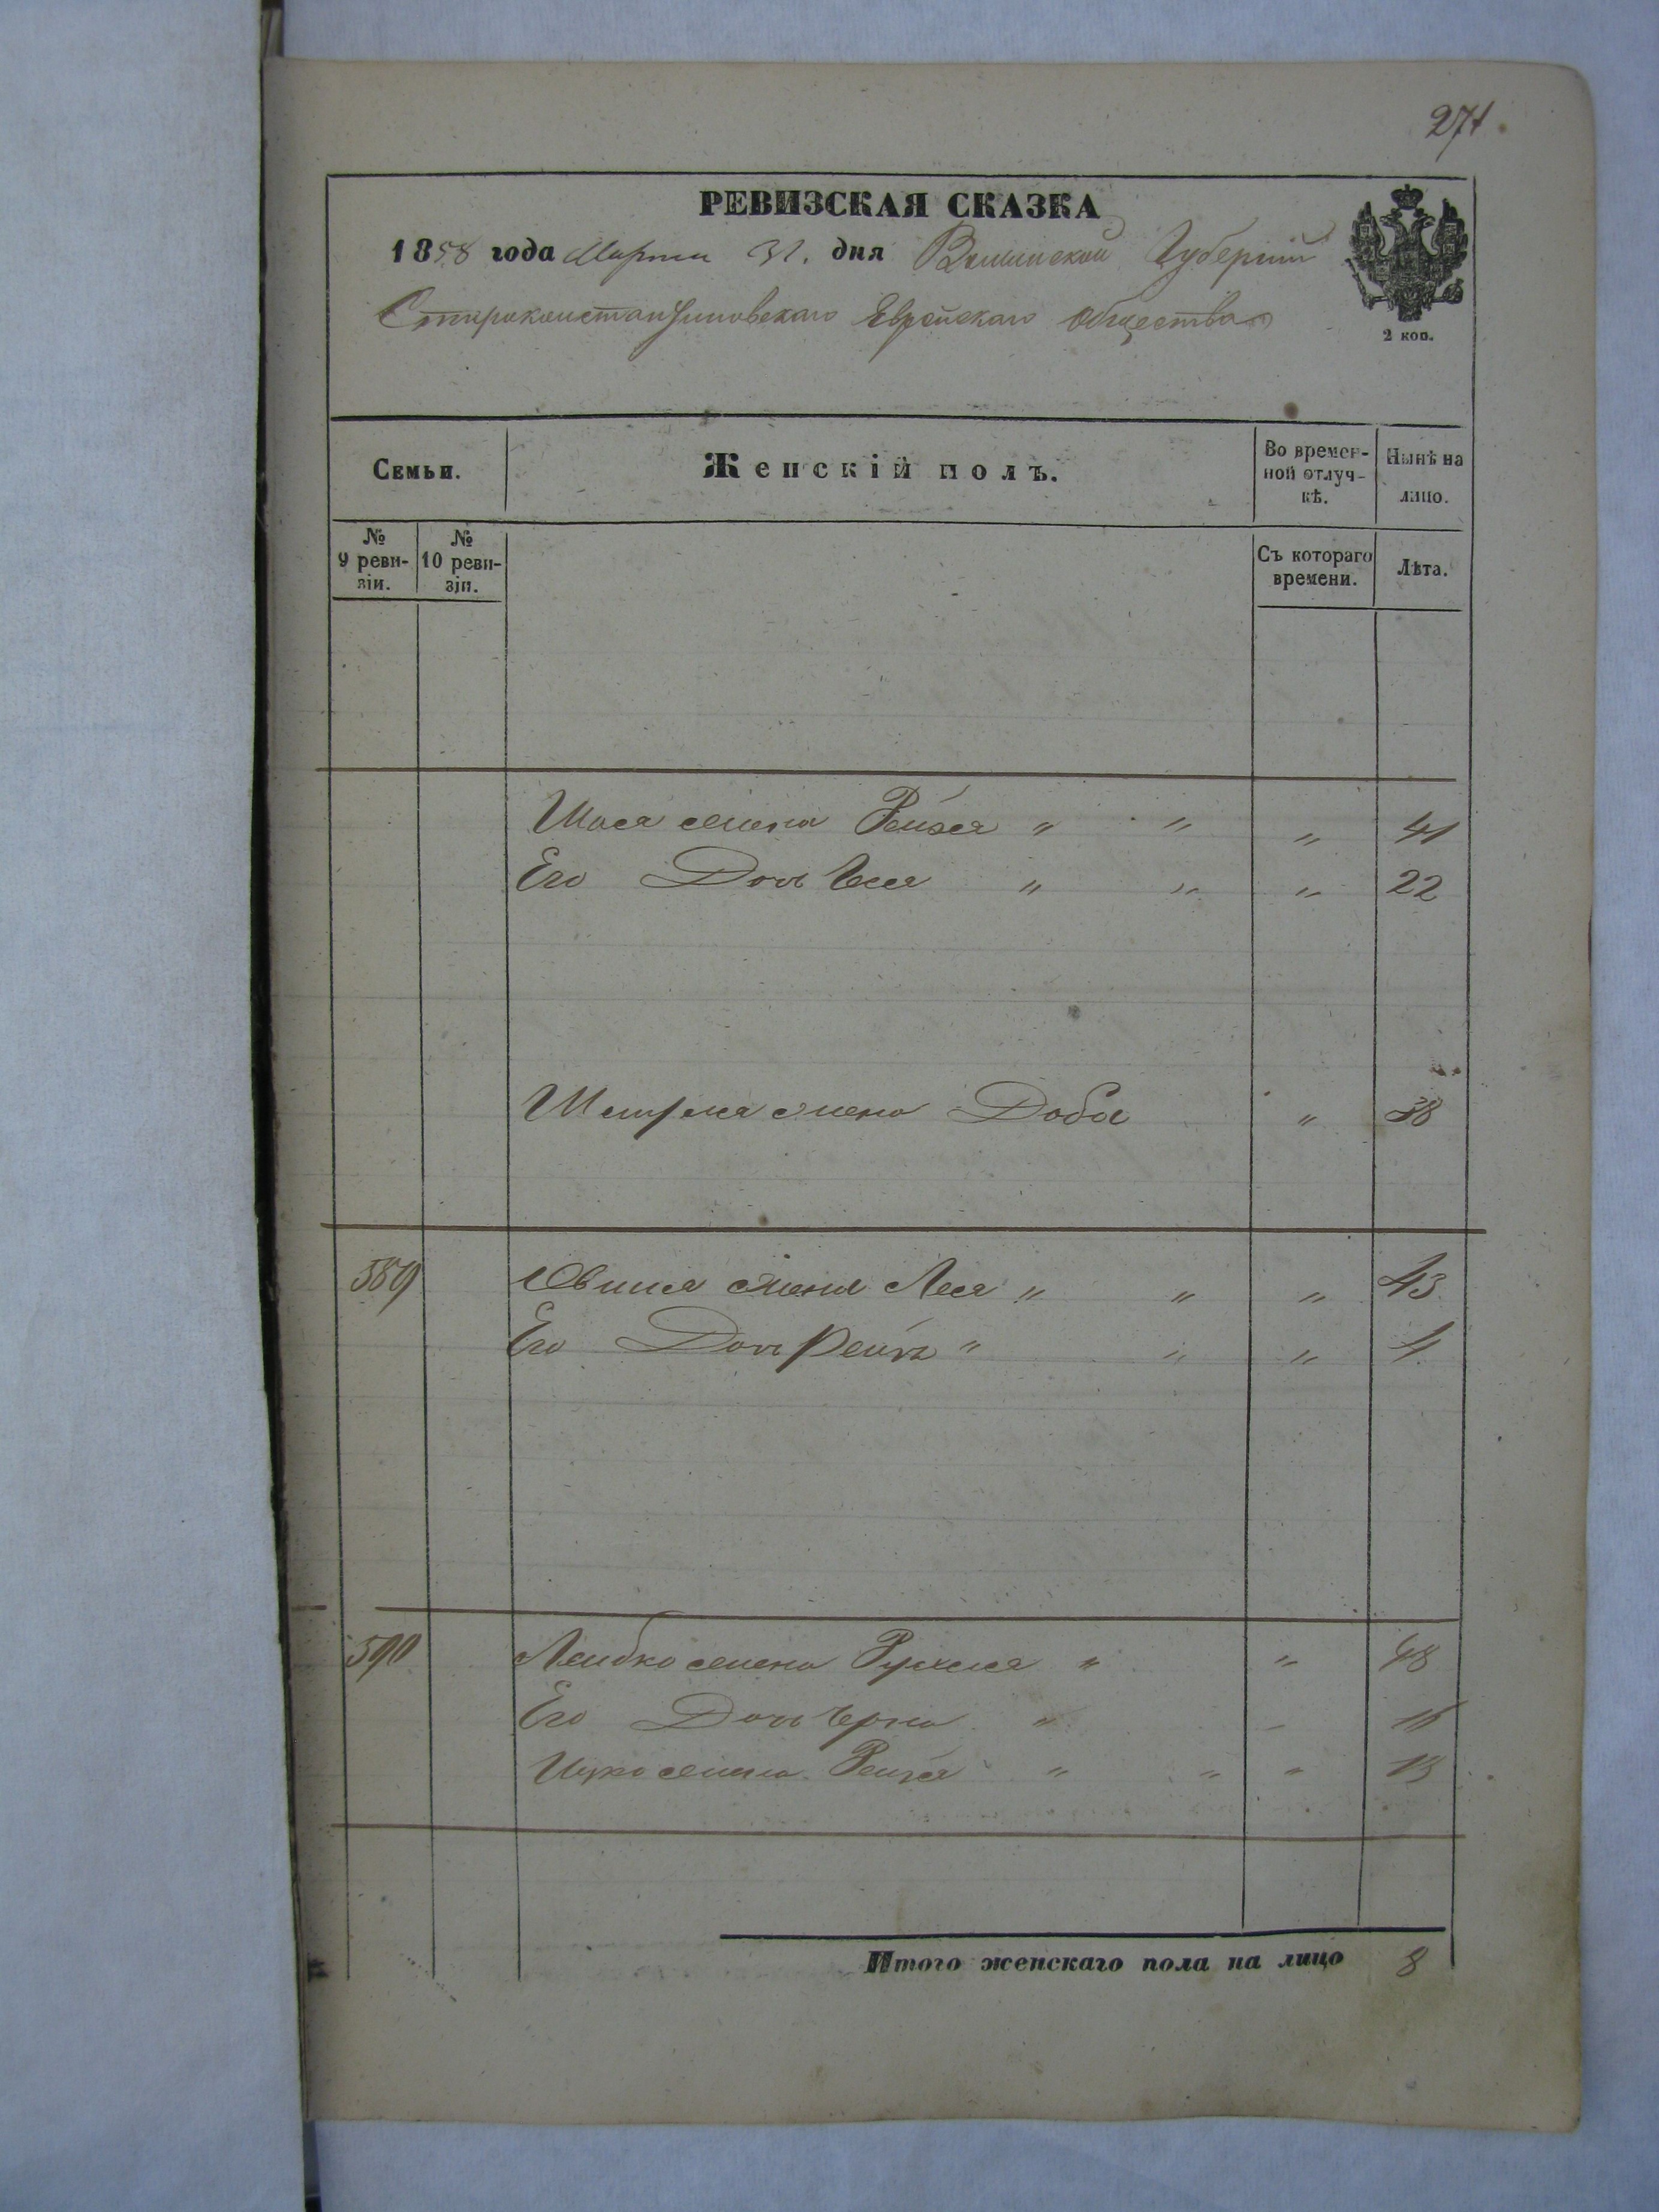 271
РЕВИЗСКАЯ СКАЗКА
1858 года Марта 31. дня Волынской Губернiи
Староконстантиновскаго Еврейскаго Общества
2 коп.
Семьи.
Женскій полъ.
Во времен-
ной отлуч-
кѣ.
Нынѣ на
лицо.
№
9 реви-
зіи.
№
10 реви-
зіи.
Съ котораго
времени.
Лѣта.
жена Рейзя " " " 41
Его Дочь " " " 22
жена Доба " 38
589 жена Лея " " " 43
Его Дочь " " " 4
590 Лейбко жена Рухля " " 48
Его Дочь Черна " 16
жена " " " 13
Итого женскаго пола на лицо 8